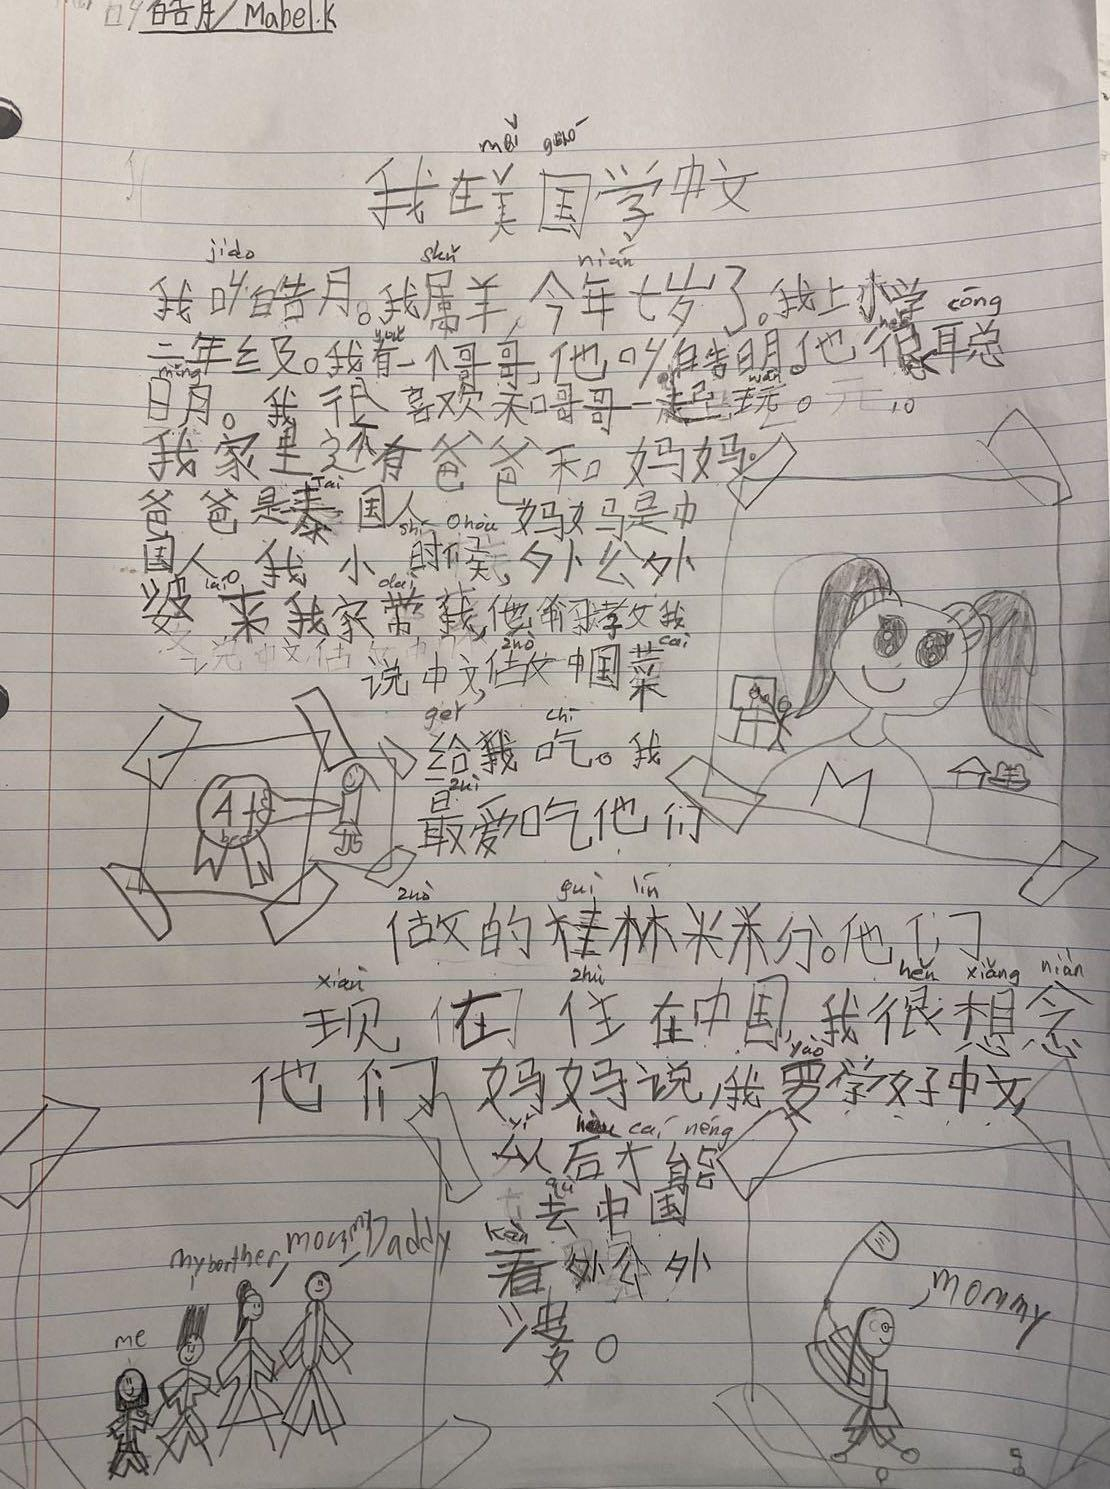 叶皓月/Mabel.K
měi guó
我在美国学中文
jiào shǔ nián
我叫皓月。我属羊,今年七岁了。我上小学
cōng
二年级。我有一个哥哥,他叫皓明。他很聪
míng wán
明。我很喜欢和哥哥一起玩。
我家里还有爸爸和妈妈。
Tài
爸爸是泰国人 妈妈是中
shí hòu
国人 我小时候,外公外
lái dài
婆来我家带我,他们教我
zuò cài
说中文,做中国菜
gěi chī
给我吃。我
zuì
最爱吃他们
zuò guì lín
做的桂林米粉。他们
xiàn zhù hěn xiǎng niàn
现在住在中国,我很想念
yào
他们 妈妈说,我要学好中文,
yǐ hòu cái néng
以后才能
qù
去中国
kàn
看外公外
婆。
A+s
M
me
my borther
mommy
Daddy
mommy